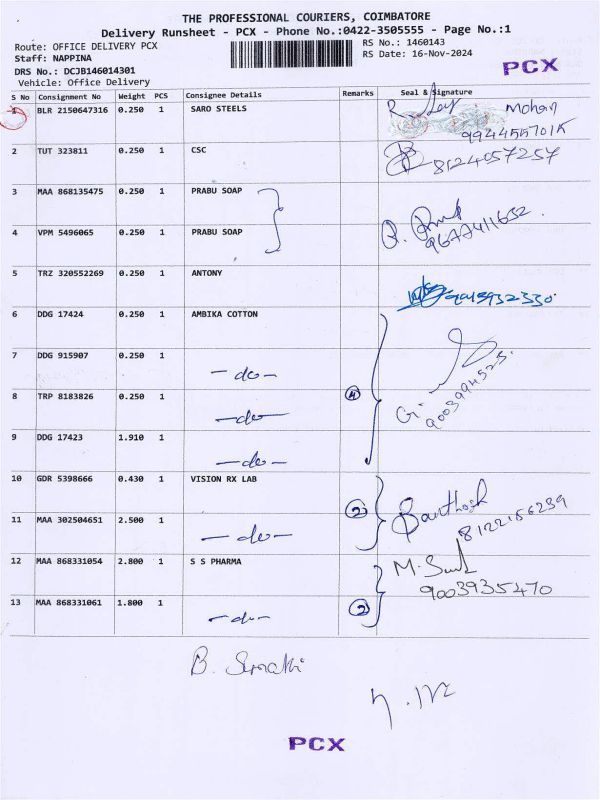 THE PROFESSIONAL COURIERS, COIMBATORE
Delivery Runsheet - PCX - Phone No.:0422-3505555 - Page No.:1
Route: OFFICE DELIVERY PCX
RS No.: 1460143
Staff: NAPPINA
RS Date: 16-Nov-2024
DRS No.: DCJB146014301
Vehicle: Office Delivery
PCX
S No Consignment No Weight PCS Consignee Details Remarks Seal & Signature
1 BLR 2150647316 0.250 1 SARO STEELS Mohan
2 TUT 323811 0.250 1 CSC 8124057257
3 MAA 868135475 0.250 1 PRABU SOAP
4 VPM 5496065 0.250 1 PRABU SOAP 9677411652
5 TRZ 320552269 0.250 1 ANTONY
6 DDG 17424 0.250 1 AMBIKA COTTON
7 DDG 915907 0.250 1 -do-
8 TRP 8183826 0.250 1 -do- 4 G. 9003994525
9 DDG 17423 1.910 1 -do-
10 GDR 5398666 0.430 1 VISION RX LAB 2
11 MAA 302504651 2.500 1 -do- 8122156239
12 MAA 868331054 2.800 1 S S PHARMA M.
13 MAA 868331061 1.800 1 -do- 2 9003935470
B.
PCX